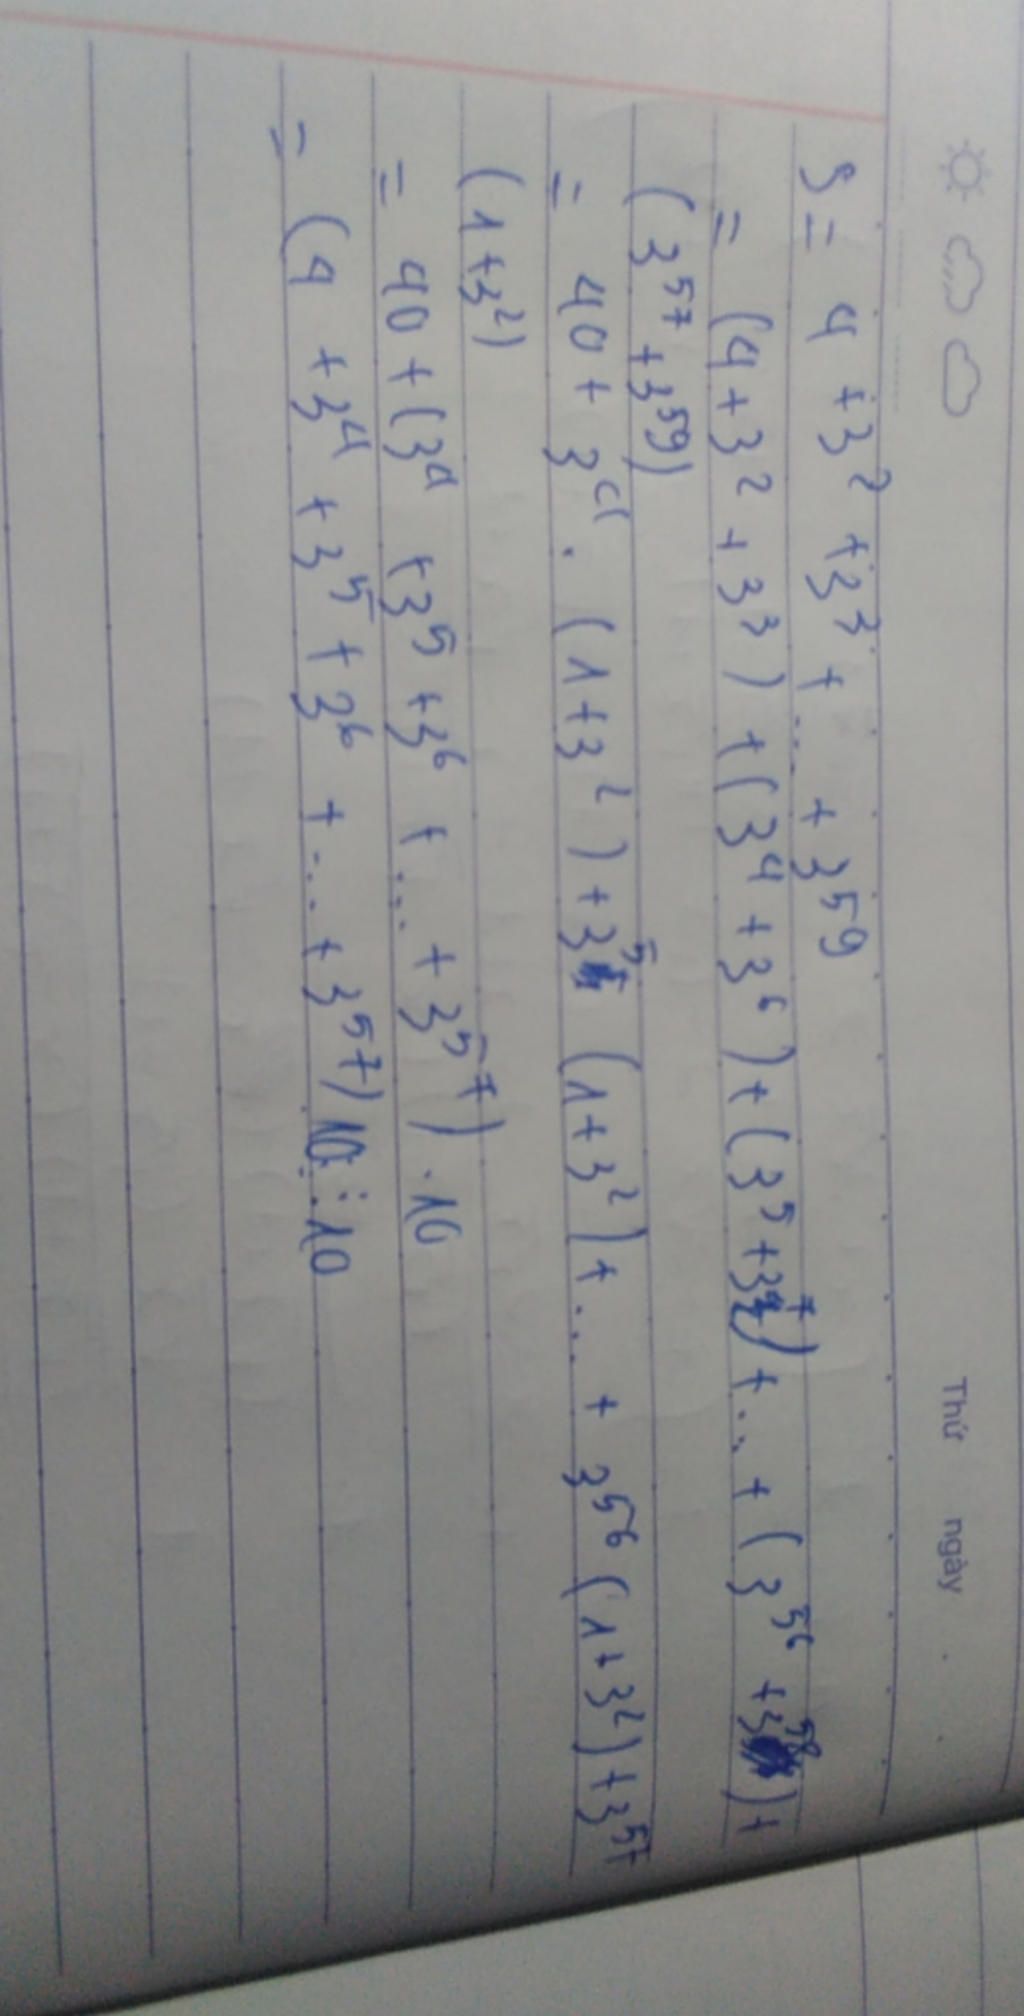 Thứ ngày
S = 4 + 3² + 3³ + ... + 3⁵⁹
= (4 + 3² + 3³) + (3⁴ + 3⁶) + (3⁵ + 3⁷) + ... + (3⁵⁶ + 3⁵⁸) +
(3⁵⁷ + 3⁵⁹)
= 40 + 3⁴ . (1 + 3²) + 3⁵ (1 + 3²) + ... + 3⁵⁶ (1 + 3²) + 3⁵⁷
(1 + 3²)
= 40 + (3⁴ + 3⁵ + 3⁶ + ... + 3⁵⁷) . 10
= (4 + 3⁴ + 3⁵ + 3⁶ + ... + 3⁵⁷) 10 ⋮ 10